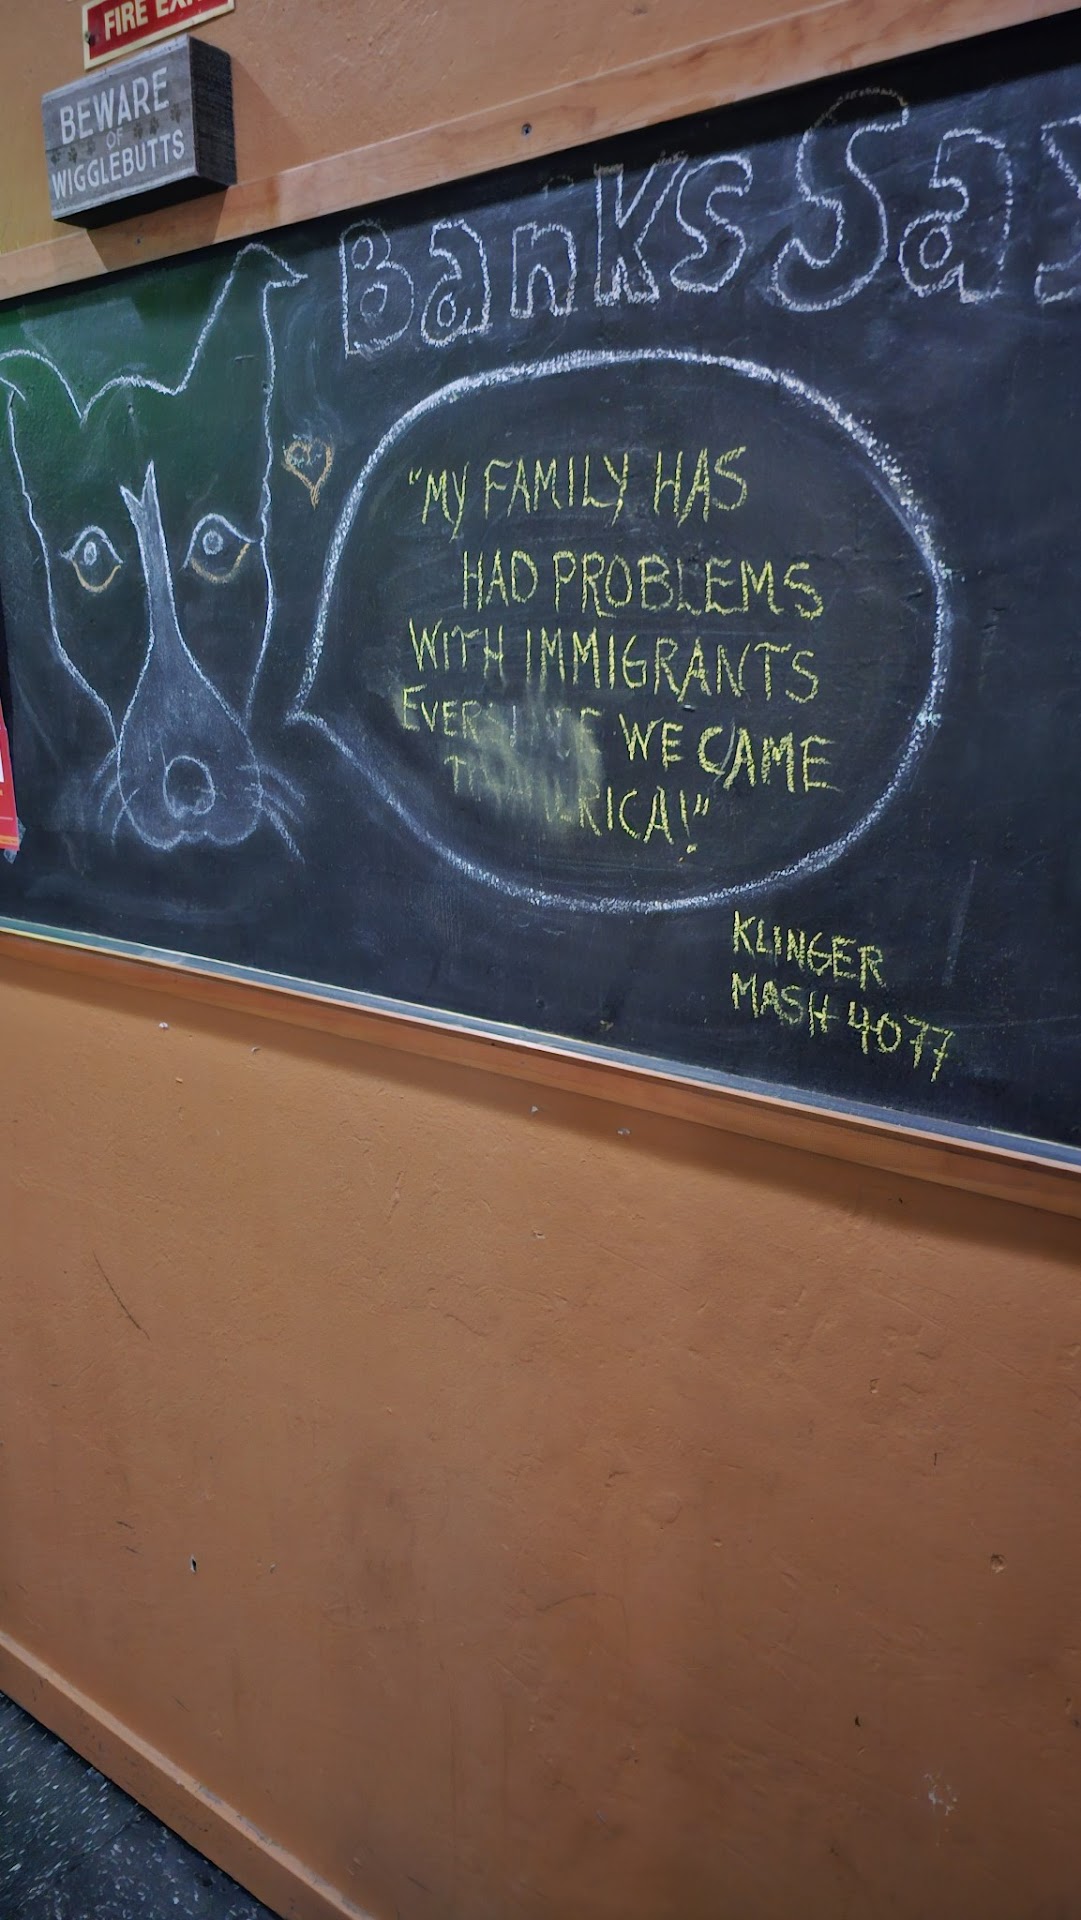 FIRE EXI
BEWARE
OF
WIGGLEBUTTS
Banks Say
"MY FAMILY HAS
HAD PROBLEMS
WITH IMMIGRANTS
EVER WE CAME
RICA!"
KLINGER
MASH 4077